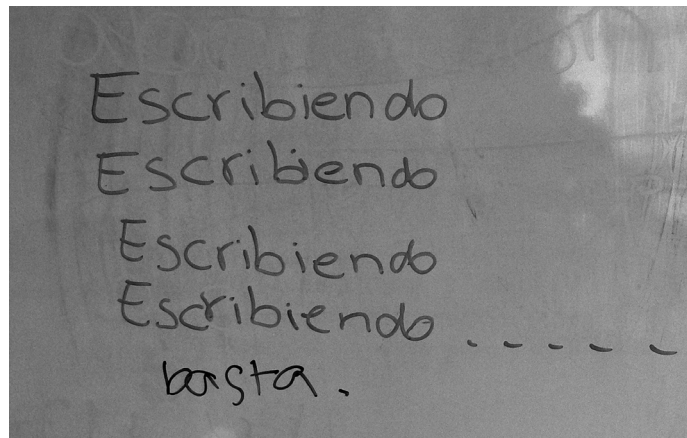 Escribiendo
Escribiendo
Escribiendo
Escribiendo . - - - - -
basta.